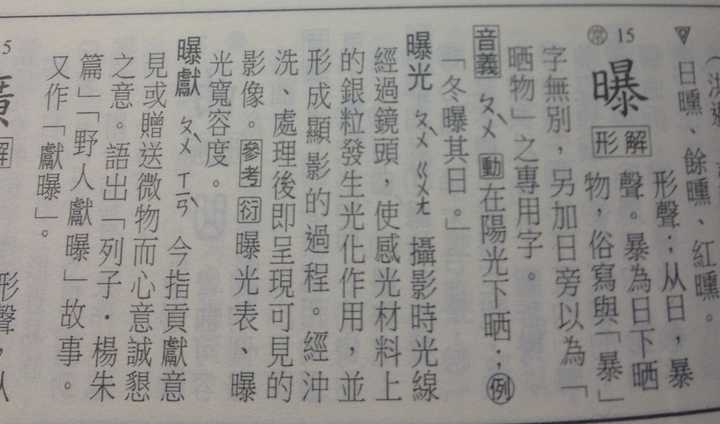 日曛、餘曛、紅曛。
常 15
曝
形解
形聲；从日，暴
聲。暴為日下晒
物，俗寫與「暴」
字無別，另加日旁以為「
晒物」之專用字。
音義 ㄆㄨˋ 動 在陽光下晒；例
「冬曝其日。」
曝光 ㄆㄨˋ ㄍㄨㄤ 攝影時光線
經過鏡頭，使感光材料上
的銀粒發生光化作用，並
形成顯影的過程。經沖
洗、處理後即呈現可見的
影像。參考 衍 曝光表、曝
光寬容度。
曝獻 ㄆㄨˋ ㄒㄧㄢˋ 今指貢獻意
見或贈送微物而心意誠懇
之意。語出「列子·楊朱
篇」「野人獻曝」故事。
又作「獻曝」。
5
解
形聲，从